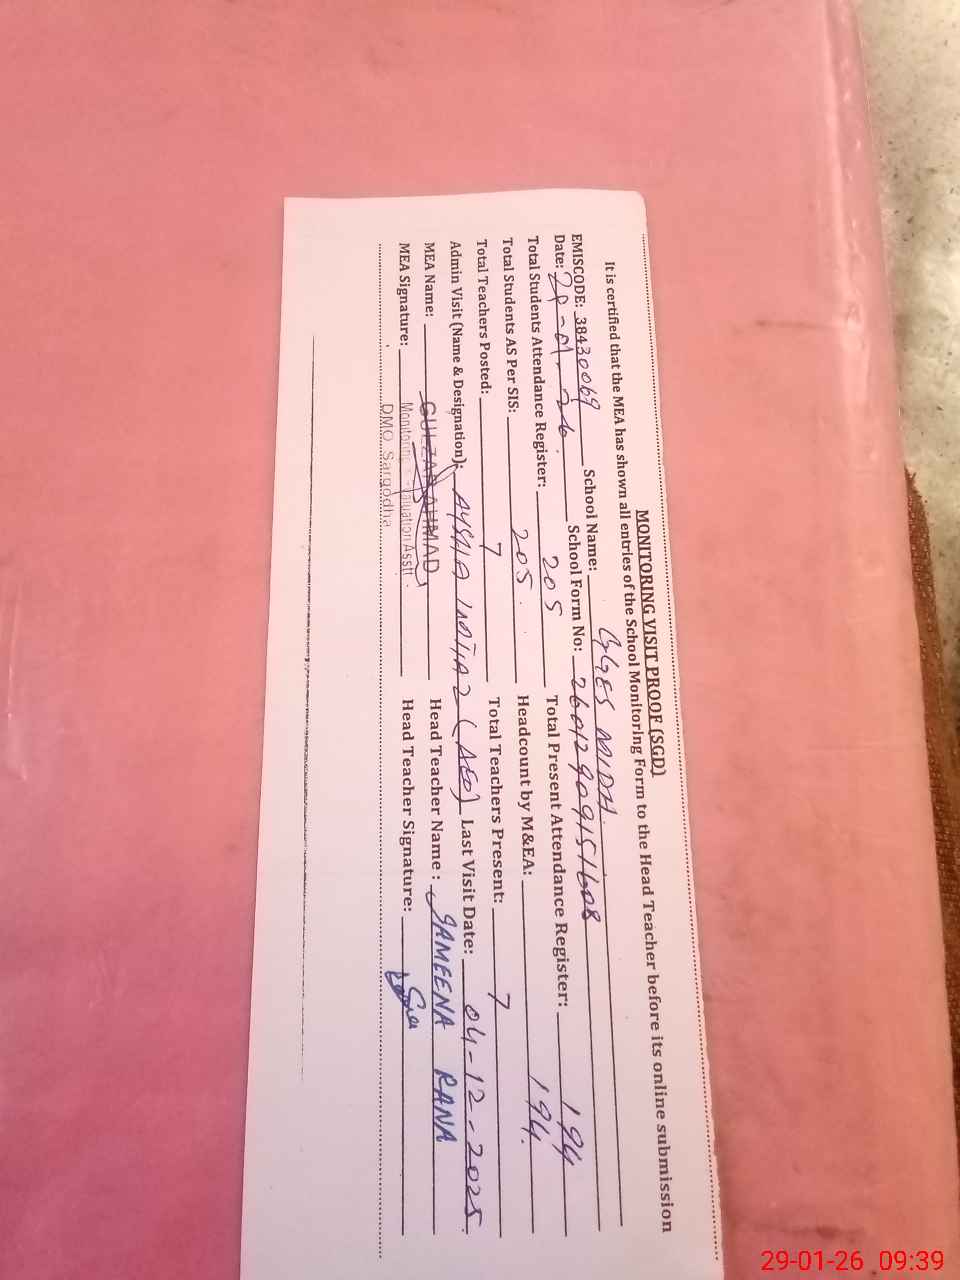 MONITORING VISIT PROOF (SGD)
It is certified that the MEA has shown all entries of the School Monitoring Form to the Head Teacher before its online submission
EMISCODE: 38430069 School Name: GGES MIDH
Date: 29-01-26. School Form No: 26012909151608
Total Students Attendance Register: 205 Total Present Attendance Register: 194
Total Students AS Per SIS: 205. Headcount by M&EA: 194.
Total Teachers Posted: 7 Total Teachers Present: 7
Admin Visit (Name & Designation): AYSHA IMTIAZ (AEO) Last Visit Date: 04-12-2025.
MEA Name: GULZAR AHMAD Head Teacher Name : SAMEENA RANA
MEA Signature: Monitoring Evaluation Asstt. Head Teacher Signature:
DMO Sargodha
29-01-26 09:39